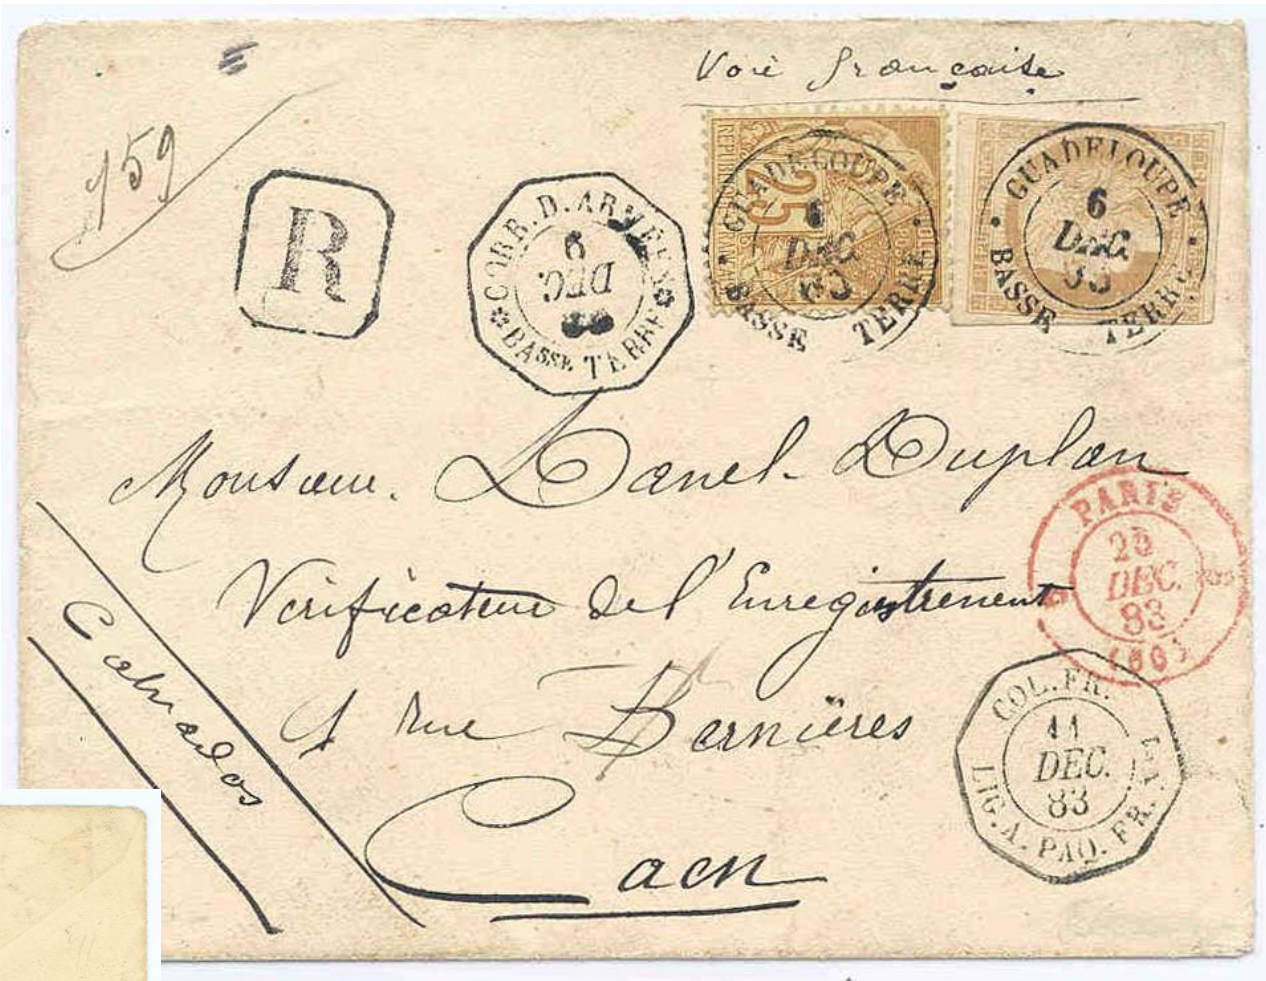 Voie française
159
R
CORR. D. ARMÉES
6
DEC.
BASSE TERRE
25
GUADELOUPE
6
DEC.
83
BASSE TERRE
GUADELOUPE
6
DEC.
83
BASSE TERRE
Monsieur Danel-Duplan
Vérificateur de l'Enregistrement
1 rue Bernières
Caen
Calvados
PARIS
DEC.
83
(60)
COL. FR.
11
DEC.
83
LIG. A. PAQ. FR.